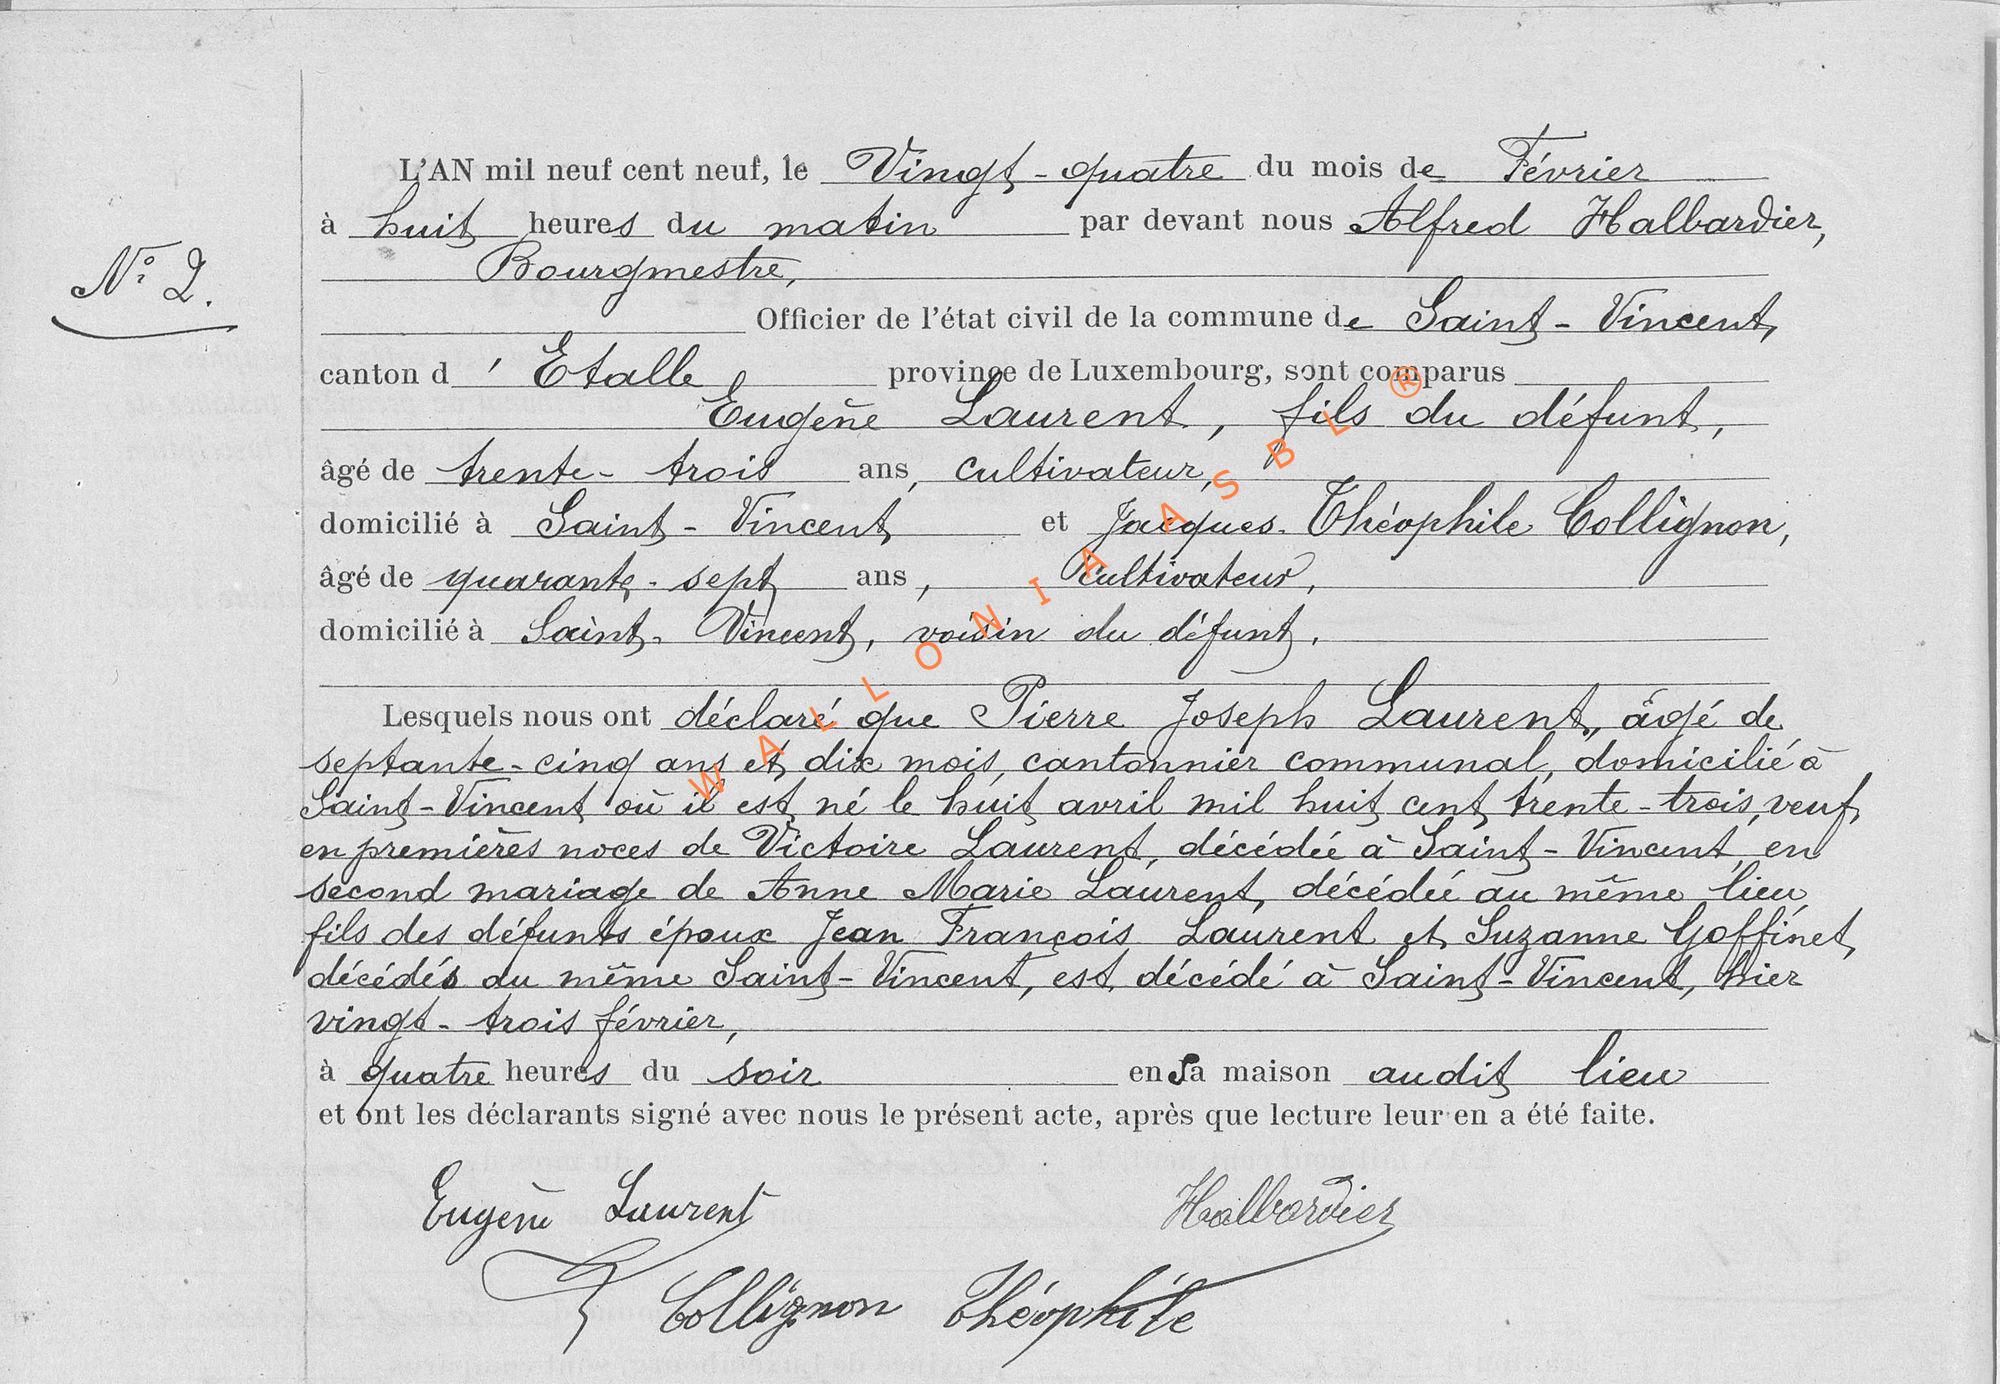 L'AN mil neuf cent neuf, le Vingt-quatre du mois de Février
à huit heures du matin par devant nous Alfred Halbardier,
N° 2.
Bourgmestre,
Officier de l'état civil de la commune de Saint-Vincent,
canton d'Etalle province de Luxembourg, sont comparus
Eugène Laurent, fils du défunt,
âgé de trente-trois ans, cultivateur,
domicilié à Saint-Vincent et Jacques-Théophile Collignon,
âgé de quarante-sept ans, cultivateur,
domicilié à Saint-Vincent, voisin du défunt.
Lesquels nous ont déclaré que Pierre Joseph Laurent, âgé de
septante-cinq ans et dix mois, cantonnier communal, domicilié à
Saint-Vincent où il est né le huit avril mil huit cent trente-trois, veuf
en premières noces de Victoire Laurent, décédée à Saint-Vincent, en
second mariage de Anne Marie Laurent, décédée au même lieu,
fils des défunts époux Jean François Laurent et Suzanne Goffinet,
décédés au même Saint-Vincent, est décédé à Saint-Vincent, hier
vingt-trois février,
à quatre heures du soir en sa maison audit lieu
et ont les déclarants signé avec nous le présent acte, après que lecture leur en a été faite.
Eugène Laurent Halbardier
Collignon Théophile
WALLONIA ASBL ®